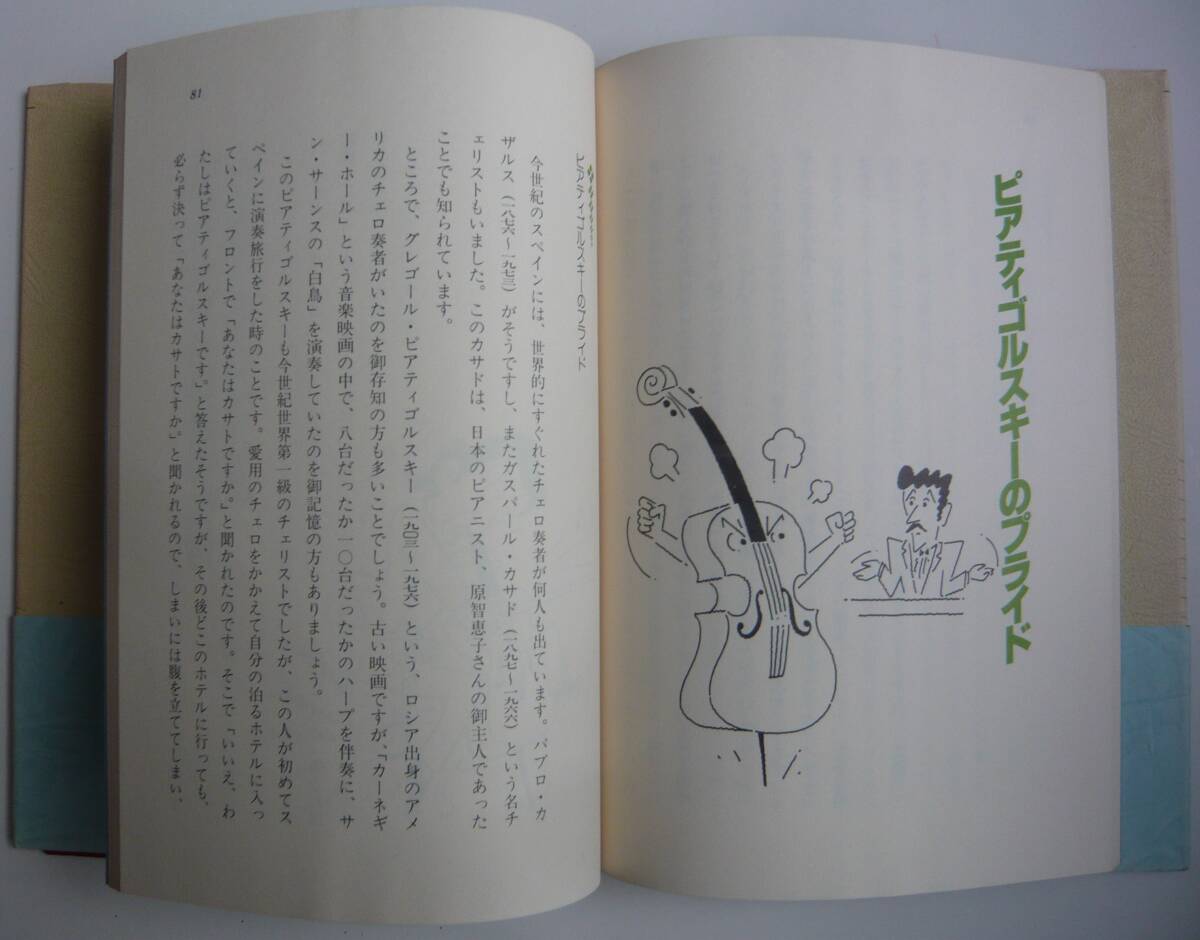 ピアティゴルスキーのプライド
ピアティゴルスキーのプライド
今世紀のスペインには、世界的にすぐれたチェロ奏者が何人も出ています。パブロ・カ
ザルス（一八七六〜一九七三）がそうですし、またガスパール・カサド（一八九七〜一九六六）という名チ
ェリストもいました。このカサドは、日本のピアニスト、原智恵子さんの御主人であった
ことでも知られています。
ところで、グレゴール・ピアティゴルスキー（一九〇三〜一九七六）という、ロシア出身のアメ
リカのチェロ奏者がいたのを御存知の方も多いことでしょう。古い映画ですが、「カーネギ
ー・ホール」という音楽映画の中で、八台だったか一〇台だったかのハープを伴奏に、サ
ン・サーンスの「白鳥」を演奏していたのを御記憶の方もありましょう。
このピアティゴルスキーも今世紀世界第一級のチェリストでしたが、この人が初めてス
ペインに演奏旅行をした時のことです。愛用のチェロをかかえて自分の泊るホテルに入っ
ていくと、フロントで「あなたはカサトですか。」と聞かれたのです。そこで「いいえ、わ
たしはピアティゴルスキーです」。と答えたそうですが、その後どこのホテルに行っても、
必らず決って「あなたはカサトですか。」と聞かれるので、しまいには腹を立ててしまい、
81